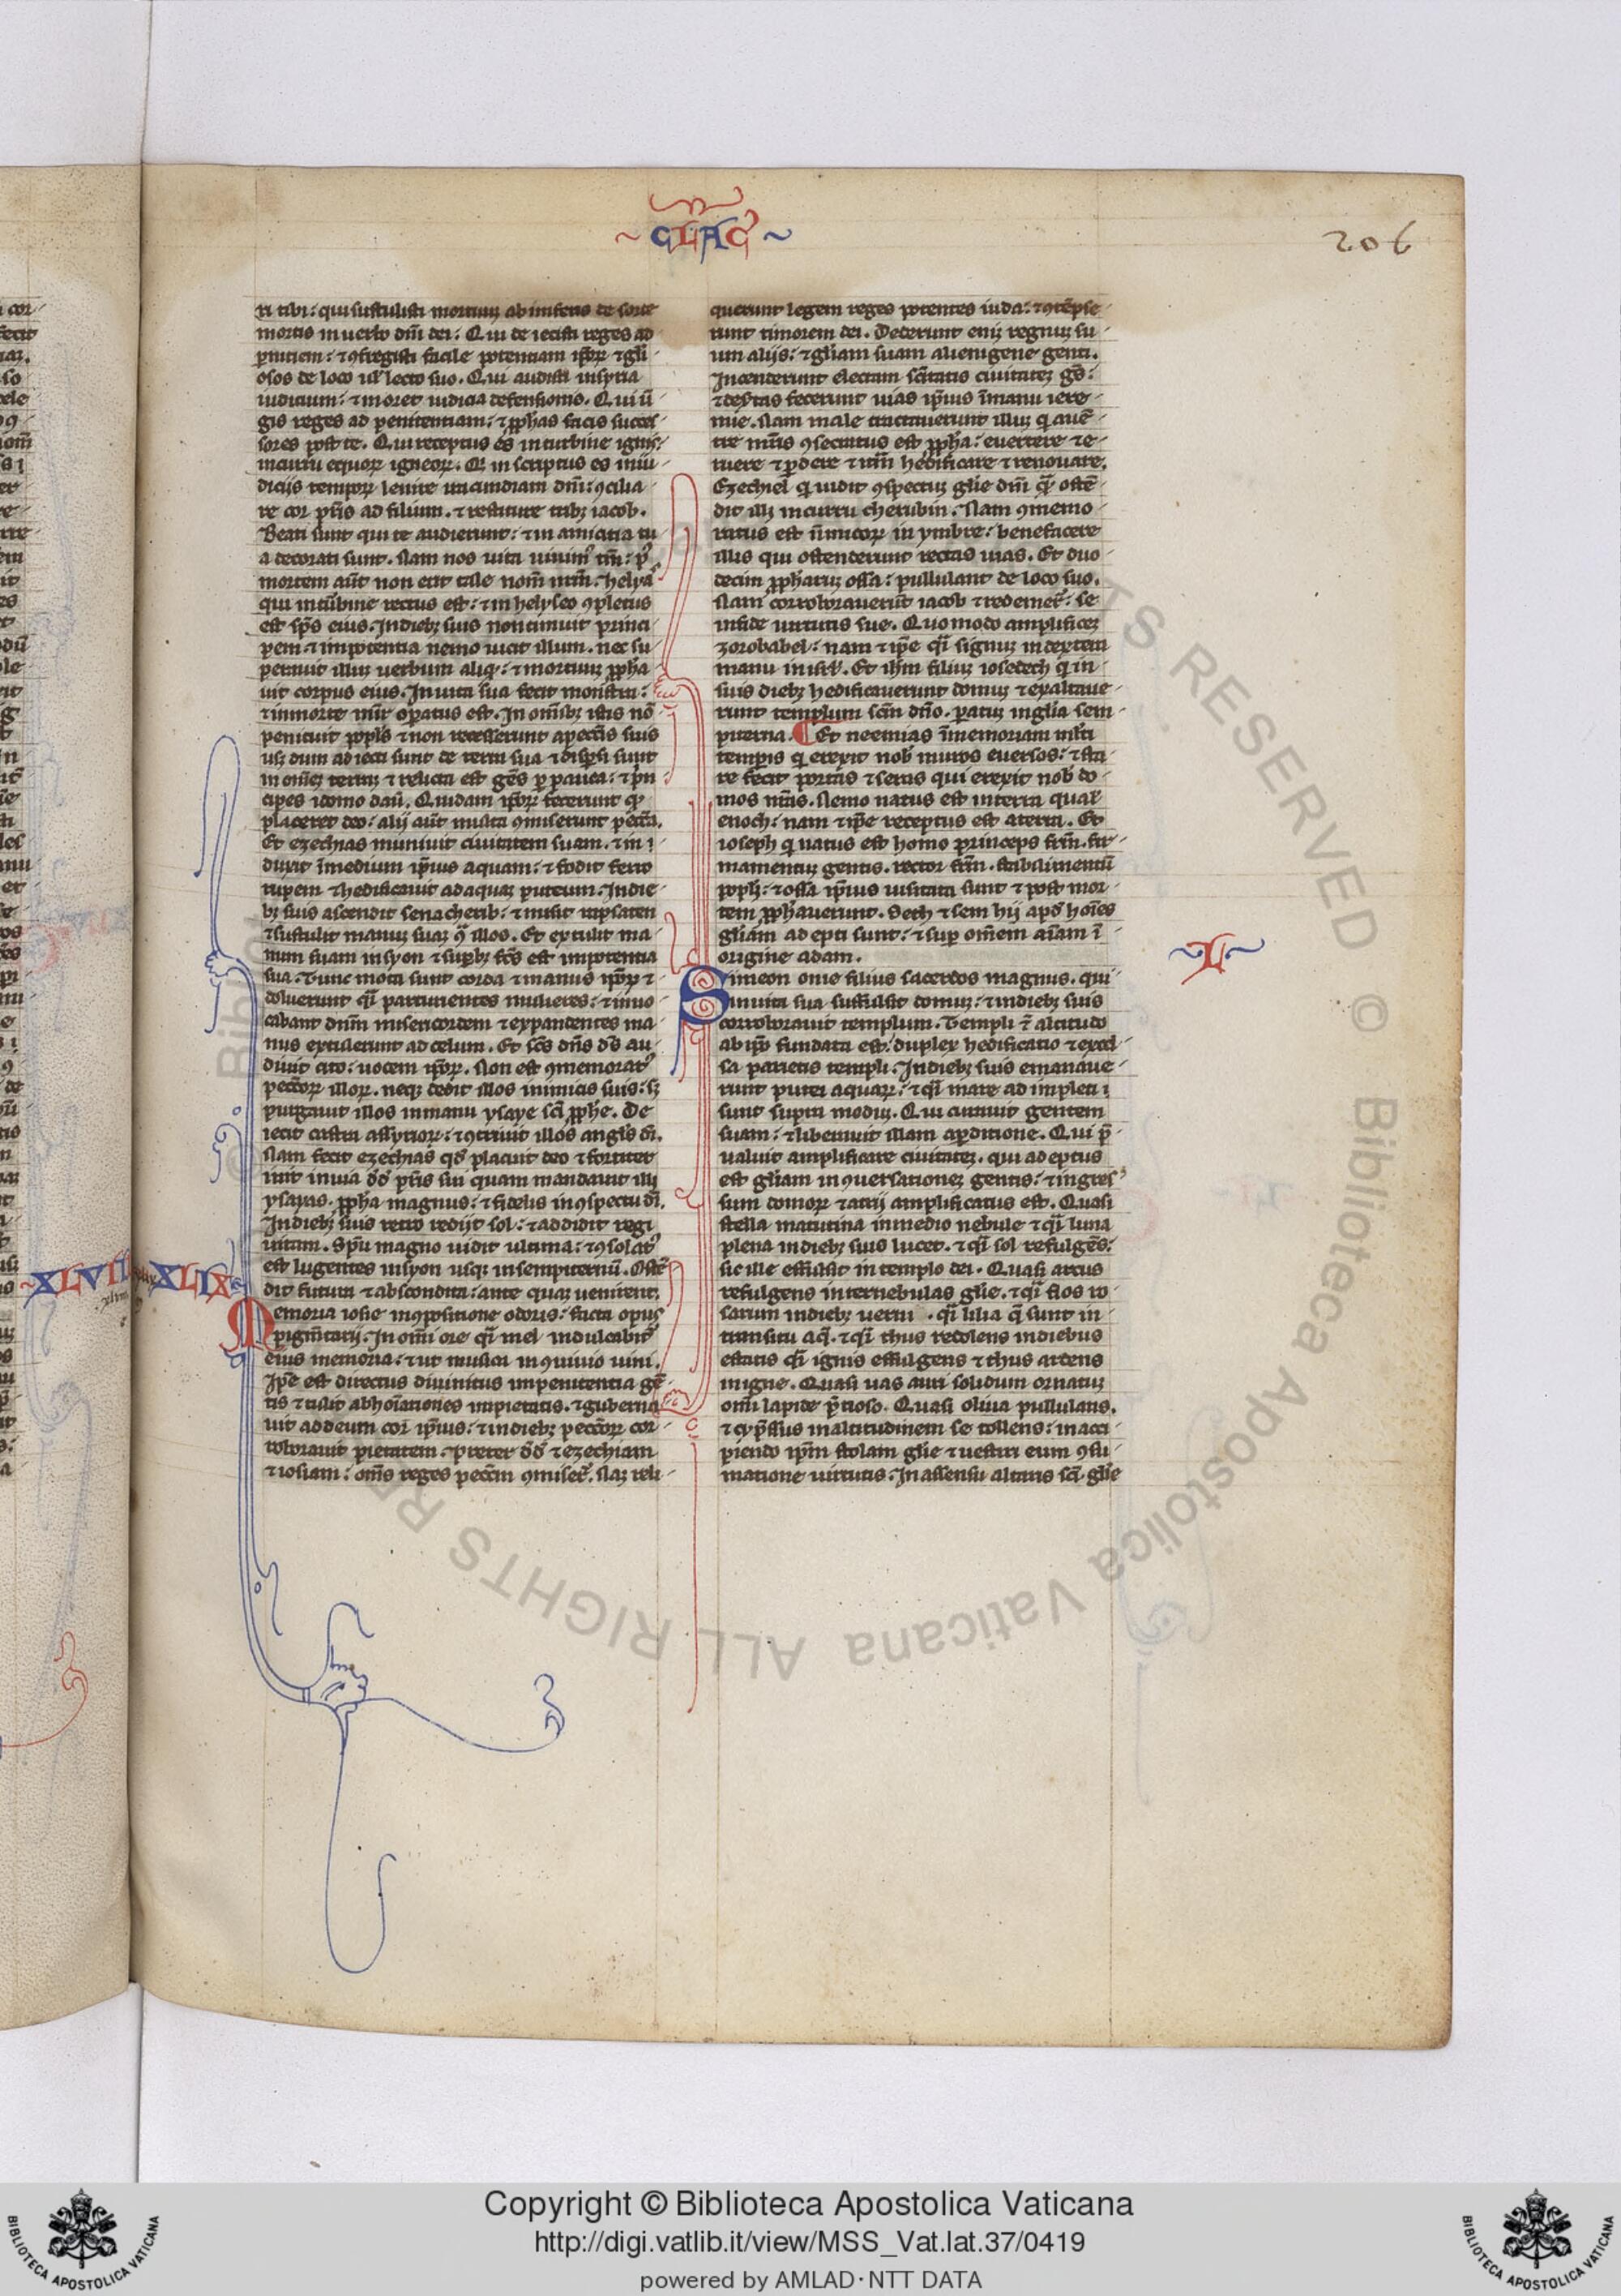 ~ GLAC ~
206
ri tibi: qui sustulisti mortuuʒ ab inferis de sorte
mortis in uerbo dnī dei: Qui de iecisti reges ad
pniciem: ⁊ ꝯfregisti facile potentiam ipoꝝ ⁊ gli
osos de loco ul̄ lecto suo. Qui audisti in syria
iudicium: ⁊ in oreb iudicia defensionis. Qui ū
gis reges ad penitentiam: ⁊ ꝓphas facis succes
sores post te. Qui receptus es in turbine ignis:
in curru equoꝝ igneoꝝ. Qi in scriptus es in iu
diciis tempoꝝ lenire iracundiam dnī: ꝯcilia
re cor pr̄is ad filium. ⁊ restituere tribʒ iacob.
Beati sunt qui te audierunt: ⁊ in amicitia tu
a decorati sunt. Nam nos uita uiuim᷒ tm̄: p᷒
mortem aūt non erit tale nom̄ nr̄m. helyas
qui in turbine tectus est: ⁊ in helyseo ꝯpletus
est sp̄s eius. In diebʒ suis non timuit princi
pem ⁊ in potentia nemo uicit illum. nec su
perauit illuʒ uerbum aliq̄: ⁊ mortuuʒ ꝓpha
uit corpus eius. In uita sua fecit monstra:
⁊ in morte mīr opatus est. In om̄ibʒ istis nō
penituit ppl̄s ⁊ non recesserunt a pecc̄is suis
usʒ dum ad iecti sunt de terra sua ⁊ dispsi sunt
in omēʒ terraʒ ⁊ relicta est gēs ꝑ pauca: ⁊ p̄n
cipes i domo dauī. Quidam ipoꝝ fecerunt qḋ
placeret deo: alij aūt multa ꝯmiserunt pecc̄a.
Et ezechias muniuit ciuitatem suam. ⁊ in i
duxit ī medium ip̄ius aquam: ⁊ fodit ferro
rupem ⁊ hedificauit ad aquaʒ puteum. In die
bʒ suis ascendit senacherib: ⁊ misit rapsacen
⁊ sustulit manuʒ suaʒ ꝯ̄ illos. Et extulit ma
num suam in syon ⁊ supbʒ fc̄s est in potentia
sua. Tunc mota sunt corda ⁊ manus ipoꝝ ⁊
doluerunt q̄i parturientes mulieres: ⁊ inuo
cabant dnm̄ misericordem ⁊ expandentes ma
nus extulerunt ad celum. Et sc̄s dn̄s d̄s au
diuit cito: uocem ipoꝝ. Non est ꝯmemorat᷒
peccoꝝ illoꝝ. neqʒ dedit illos inimicis suis: sʒ
purgauit illos in manu ysaye sc̄i ꝓphe. De
iecit castra assyrioꝝ: ⁊ ꝯtriuit illos angl̄s dī.
Nam fecit ezechias qḋ placuit deo ⁊ fortiter
iuit in uia dd̄ pr̄is sui quam mandauit illi
ysayas. ꝓpha magnus: ⁊ fidelis in ꝯspectu dī.
In diebʒ suis retro redijt sol: ⁊ addidit regi
uitam. Spū magno uidit ultima: ⁊ ꝯsolat᷒
est lugentes in syon usqʒ in sempiternū. Ostē
dit futura ⁊ abscondita: ante quaʒ uenirent.
XLVIII XLIX
Memoria iosie in ꝯpositione odoris: facta opus
pigm̄tarij. In omī ore q̄i mel indulcabit᷒
eius memoria: ⁊ ut musica in ꝯuiuio uini.
Ip̄e est directus diuinitus in penitentia gē
tis ⁊ tulit abhoīationes impietatis. ⁊ guberna
uit ad deum cor ip̄ius: ⁊ in diebʒ peccoꝝ cor
roborauit pietatem. Preter dd̄ ⁊ ezechiam
⁊ iosiam: om̄s reges pecc̄m ꝯmiser̄. Naʒ reli
querunt legem reges potentes iuda: ⁊ ꝯtēpse
runt timorem dei. Dederunt eni regnuʒ su
um aliis: ⁊ gliam suam alienigene genti.
Incenderunt electam sc̄itatis ciuitateʒ gs̄:
⁊ desʳtas fecerunt uias ip̄ius ī manu iere
mie. Nam male tractauerunt illuʒ q̇ a uē
tre mr̄is ꝯsecratus est ꝓpha: euertere ⁊ e
ruere ⁊ ꝑdere ⁊ itm̄ hedificare ⁊ renouare.
Ezechiel q̇ uidit ꝯspectuʒ glie dnī quā ostē
dit illi in curru cherubin. Nam ꝯmemo
ratus est inimicoꝝ in ymbre: benefacere
illis qui ostenderunt rectas uias. Et duo
decim ꝓphaꝝ ossa: pullulant de loco suo.
Nam corroborauerūt iacob ⁊ redemer̄: se
in fide uirtutis sue. Quomodo amplificeʒ
zorobabel: nam ⁊ ip̄e q̄i signuʒ in dextera
manu in isrl̄. Et ihm̄ filiuʒ iosedech q̇ in
suis diebʒ hedificauerunt domuʒ ⁊ exaltaue
runt templum sc̄m dn̄o. paratuʒ in glia sem
piterna. ¶ Et neemias ī memoriam mlti
tempis q̇ erexit nob̄ muros euersos: ⁊ sta
re fecit portas ⁊ seras qui erexit nob̄ do
mos nr̄as. Nemo natus est in terra qual̄
enoch: nam ⁊ ip̄e receptus est a terra. Et
ioseph q̇ natus est homo princeps frm̄. fir
mamentuʒ gentis. rector frm̄. stabilimentū
ppl̄i: ⁊ ossa ip̄ius uisitata sunt ⁊ post mor
tem ꝓphauerunt. Seth ⁊ sem hij apḋ hoīes
gliam ad epti sunt: ⁊ sup om̄em aīam ī
origine adam.
~ L ~
Simeon onie filius sacerdos magnus. qui
in uita sua suffulsit domuʒ: ⁊ in diebʒ suis
corroborauit templum. Templi ⁊̄ altitudo
ab ip̄o fundata est: duplex hedificatio ⁊ excel
sa parietis templi. In diebʒ suis emanaue
runt putei aquaꝝ: ⁊ q̄i mare ad impleti
sunt supra moduʒ. Qui curauit gentem
suam: ⁊ liberauit illam a perditione. Qui p̄
ualuit amplificare ciuitateʒ. qui ad eptus
est gliam in ꝯuersationeʒ gentis: ⁊ ingres
sum domoꝝ ⁊ atrij amplificatus est. Quasi
stella matutina in medio nebule ⁊ q̄i luna
plena in diebʒ suis lucet. ⁊ q̄i sol refulgēs:
sic ille effulsit in templo dei. Quasi arcus
refulgens inter nebulas glie. ⁊ q̄i flos ro
sarum in diebʒ uerni . q̄i lilia q̄ sunt in
transitu aq̄. ⁊ q̄i thus redolens in diebus
estatis q̄i ignis effulgens ⁊ thus ardens
in igne. Quasi uas auri solidum ornatuʒ
omī lapide p̄tioso. Quasi oliua pullulans.
⁊ cyp̄ssus in altitudinem se tollens: in acci
piendo ip̄m stolam glie ⁊ uestiri eum ꝯsu
matione uirtutis. In assensu altaris sc̄i. glie
Copyright © Biblioteca Apostolica Vaticana
http://digi.vatlib.it/view/MSS_Vat.lat.37/0419
powered by AMLAD·NTT DATA
BIBLIOTECA APOSTOLICA VATICANA
BIBLIOTECA APOSTOLICA VATICANA
© Biblioteca Apostolica Vaticana ALL RIGHTS RESERVED